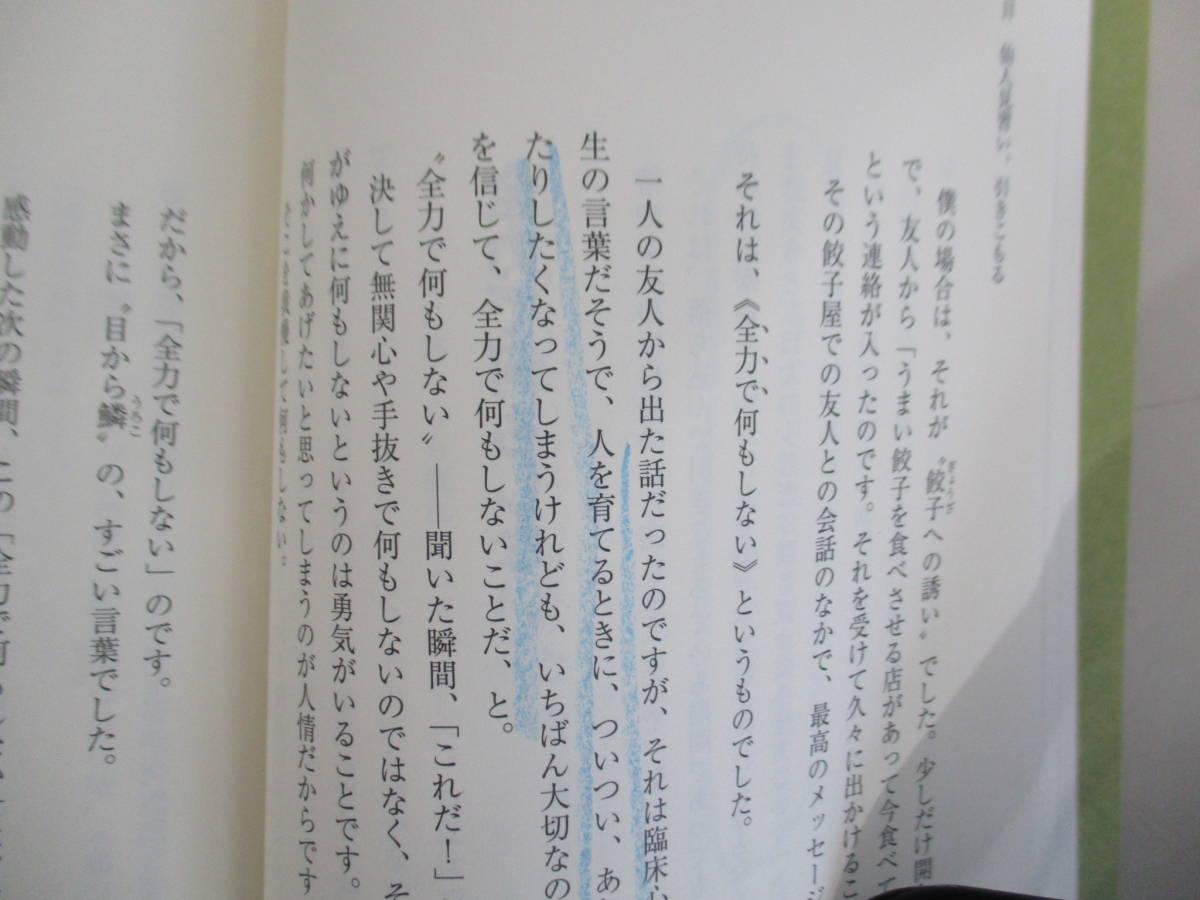 引きこもる
僕の場合は、それが〝餃子への誘い〟でした。少しだけ開
ぎょうざ
で、友人から「うまい餃子を食べさせる店があって今食べて
という連絡が入ったのです。それを受けて久々に出かけるこ
その餃子屋での友人との会話のなかで、最高のメッセージ
それは、《全力で何もしない》というものでした。
一人の友人から出た話だったのですが、それは臨床心
生の言葉だそうで、人を育てるときに、ついつい、あ
たりしたくなってしまうけれども、いちばん大切なの
を信じて、全力で何もしないことだ、と。
〝全力で何もしない〟――聞いた瞬間、「これだ！」
決して無関心や手抜きで何もしないのではなく、そ
がゆえに何もしないというのは勇気がいることです。
何かしてあげたいと思ってしまうのが人情だからです
して何もしない。
だから、「全力で何もしない」のです。
まさに〝目から鱗〟の、すごい言葉でした。
うろこ
感動した次の瞬間、この「全力で何もしない